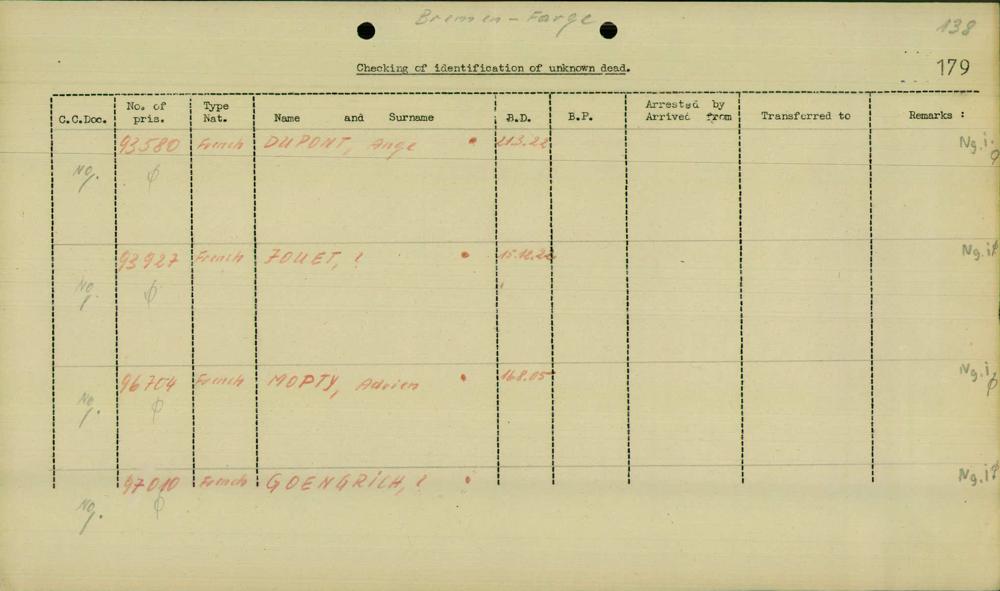 Bremen-Farge
138
Checking of identification of unknown dead.
179
C.C.Doc. No. of pris. Type Nat. Name and Surname B.D. B.P. Arrested by Arrived from Transferred to Remarks :
93580 French DUPONT, Ange 21.3.22 Ng.i.
No. ϕ
93927 French FOUET, ? 15.12.22 Ng.i.
No. ϕ
96704 French MOPTY, Adrien 16.8.05 Ng.i.
No. ϕ
97010 French GOENGRICH, ? Ng.i.
No. ϕ